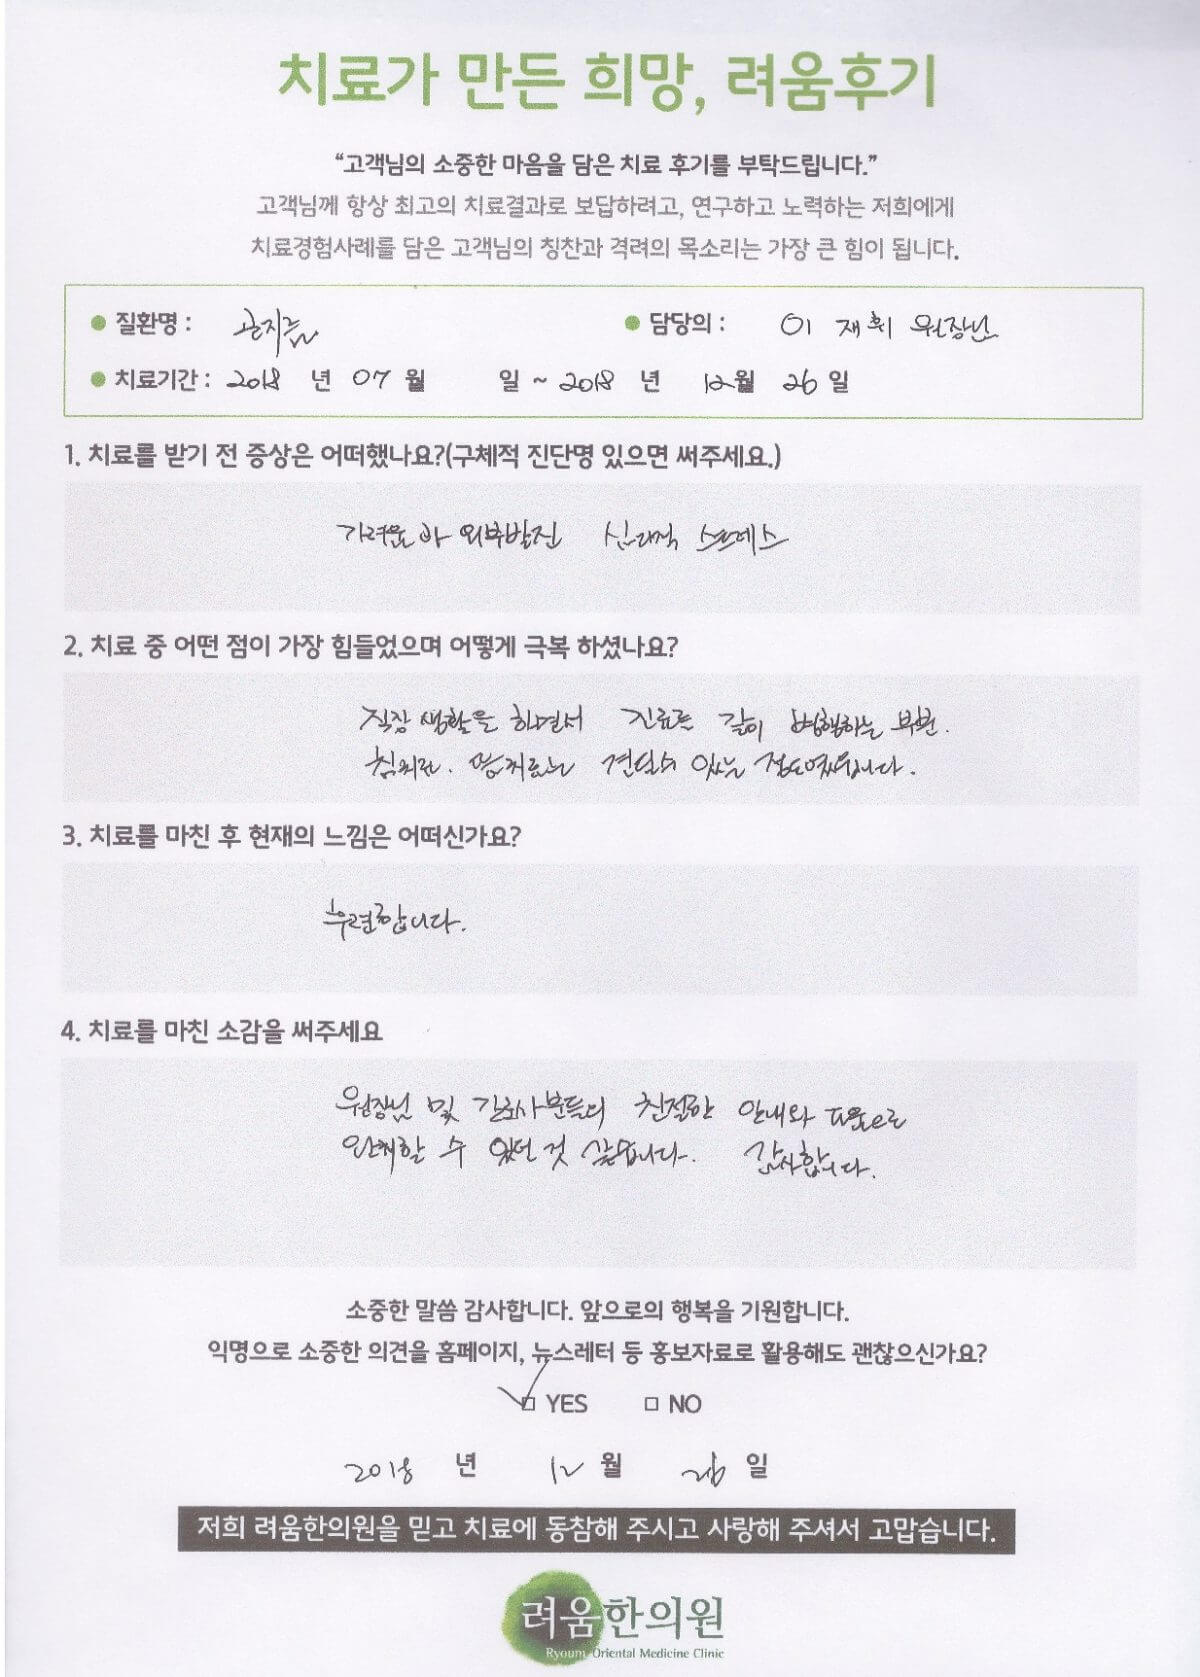 치료가 만든 희망, 려움후기
“고객님의 소중한 마음을 담은 치료 후기를 부탁드립니다.”
고객님께 항상 최고의 치료결과로 보답하려고, 연구하고 노력하는 저희에게
치료경험사례를 담은 고객님의 칭찬과 격려의 목소리는 가장 큰 힘이 됩니다.
질환명 : 곤지름 담당의 : 이 재휘 원장님
치료기간 : 2018 년 07 월 일 ~ 2018 년 12월 26 일
1. 치료를 받기 전 증상은 어떠했나요?(구체적 진단명 있으면 써주세요.)
가려움과 외부발진 심리적 스트레스
2. 치료 중 어떤 점이 가장 힘들었으며 어떻게 극복 하셨나요?
직장 생활을 하면서 진료를 같이 병행하는 부분.
침치료. 뜸치료는 견딜수 있는 정도였습니다.
3. 치료를 마친 후 현재의 느낌은 어떠신가요?
후련합니다.
4. 치료를 마친 소감을 써주세요
원장님 및 간호사분들의 친절한 안내와 도움으로
완치할 수 있었던 것 같습니다. 감사합니다.
소중한 말씀 감사합니다. 앞으로의 행복을 기원합니다.
익명으로 소중한 의견을 홈페이지, 뉴스레터 등 홍보자료로 활용해도 괜찮으신가요?
YES NO
2018 년 12 월 26 일
저희 려움한의원을 믿고 치료에 동참해 주시고 사랑해 주셔서 고맙습니다.
려움한의원
Ryoum Oriental Medicine Clinic